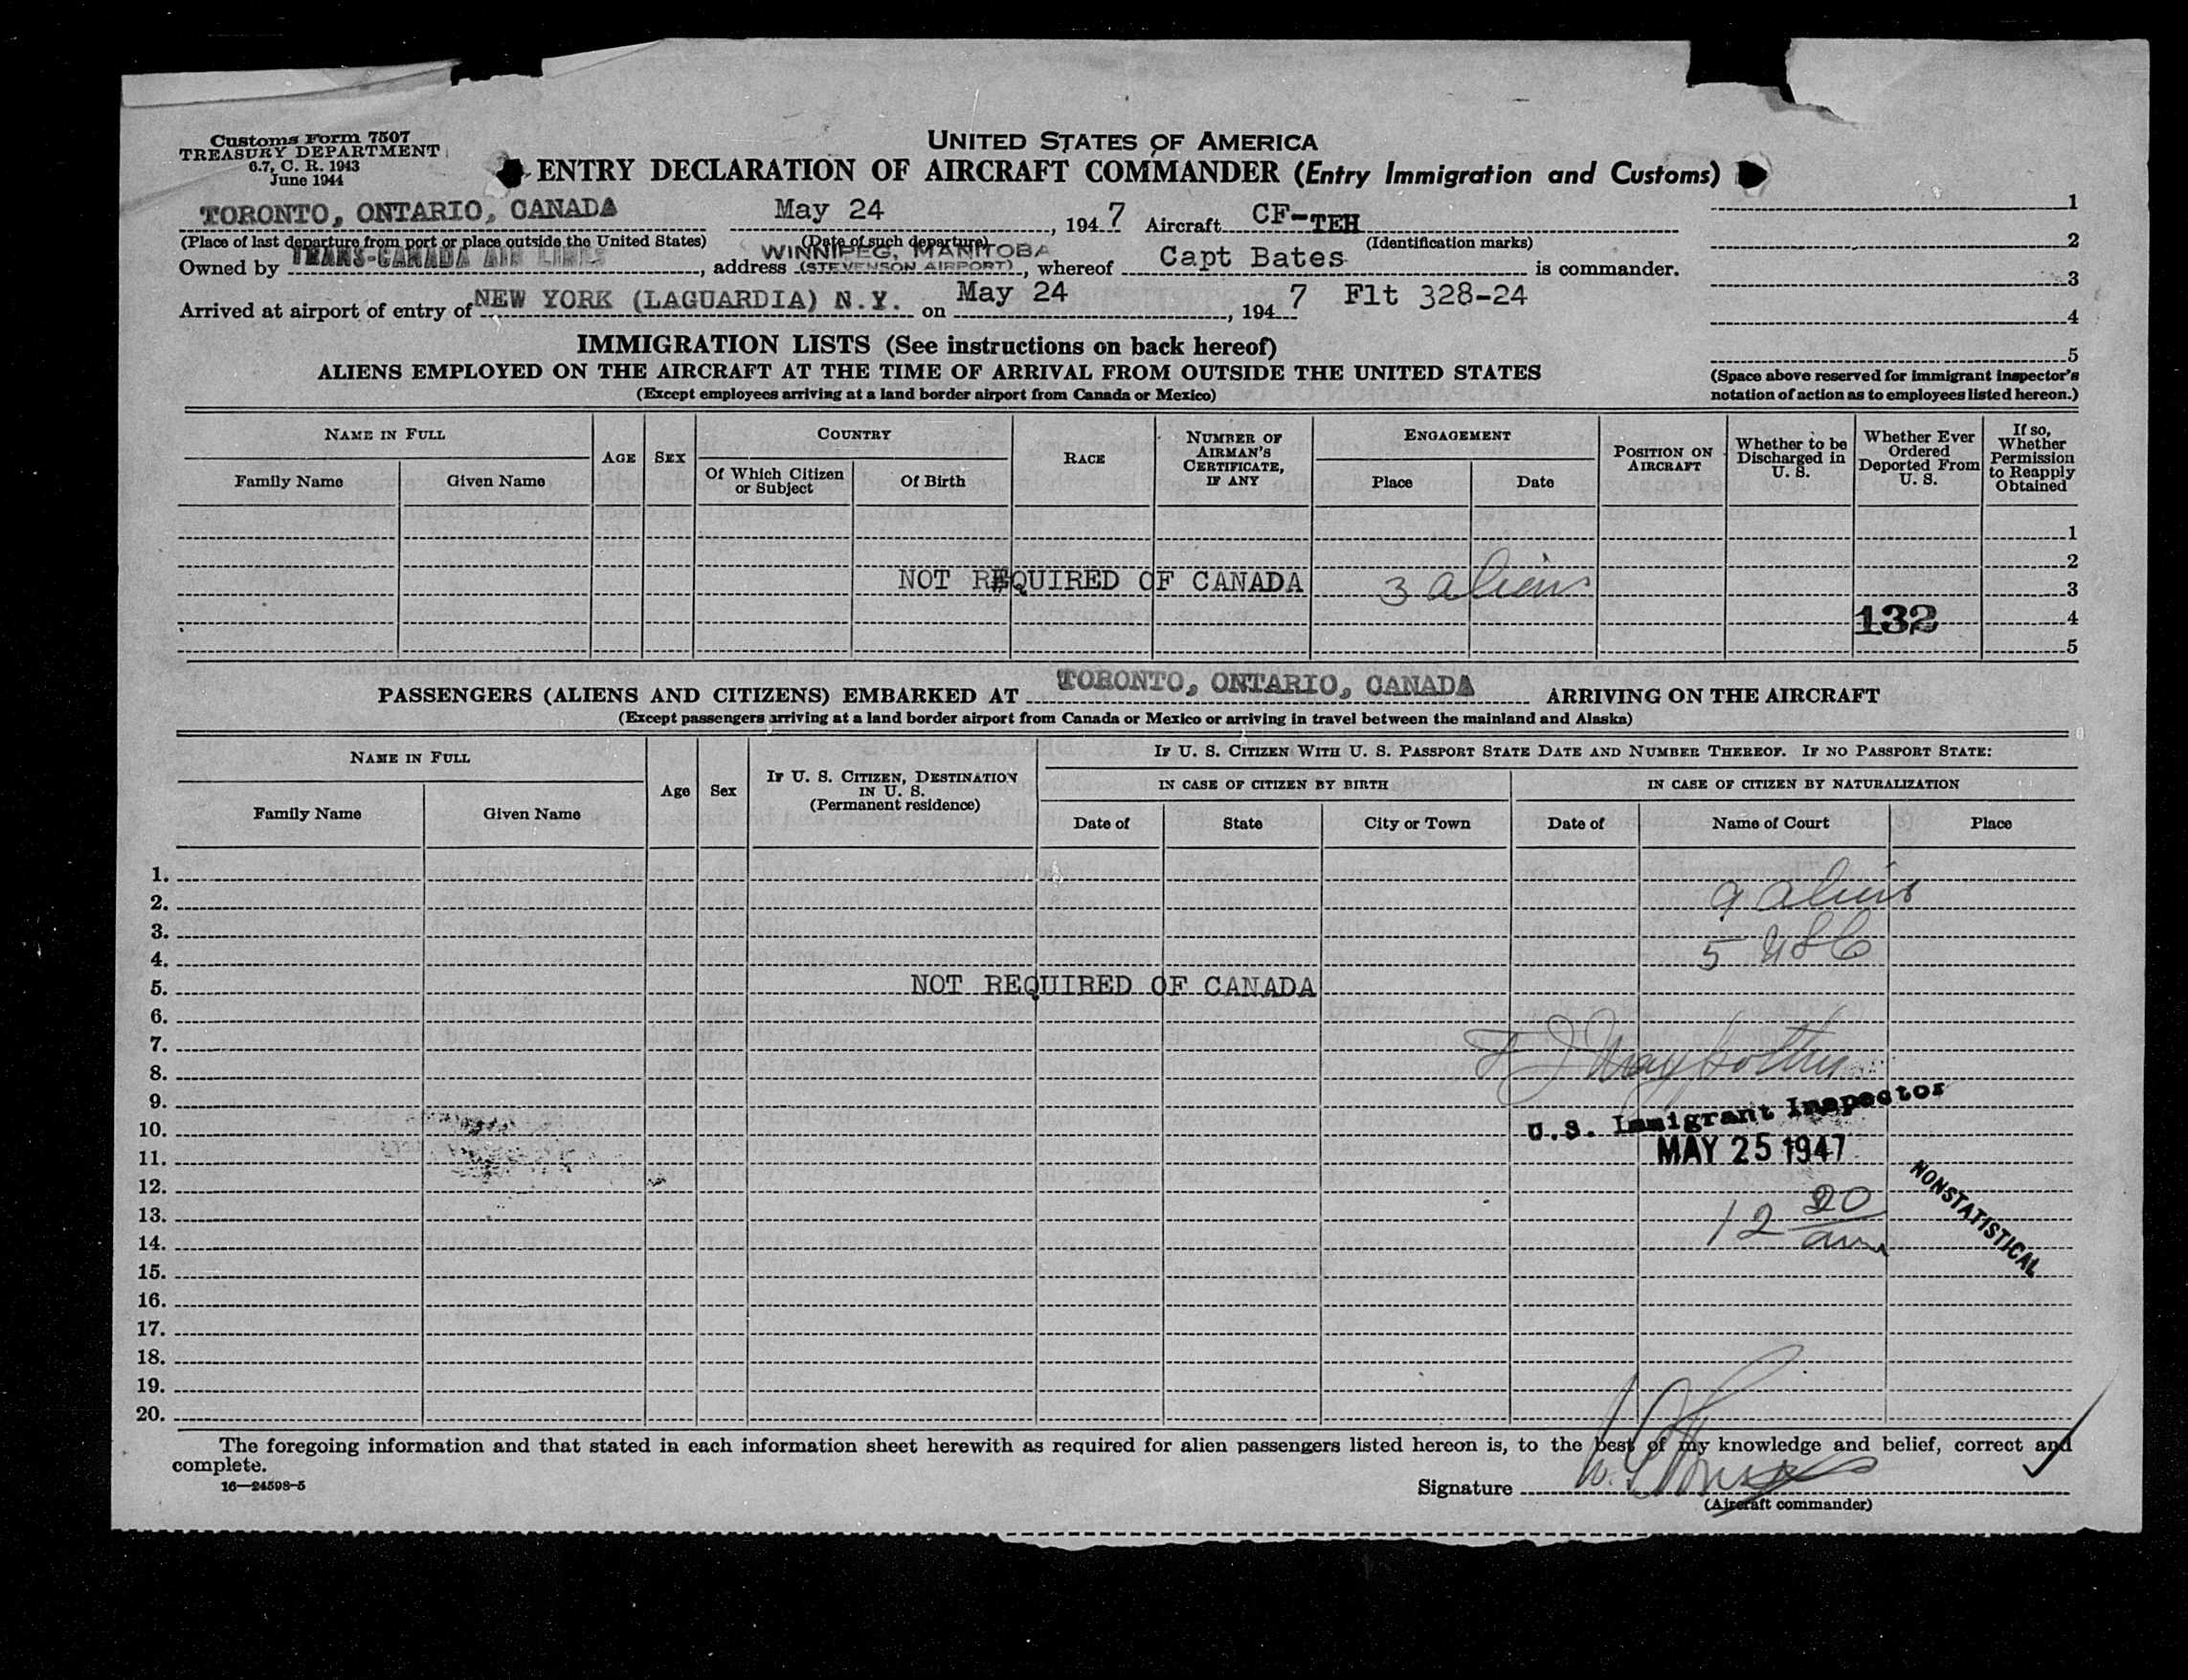 Customs Form 7507
TREASURY DEPARTMENT
6.7, C. R. 1943
June 1944
UNITED STATES OF AMERICA
ENTRY DECLARATION OF AIRCRAFT COMMANDER (Entry Immigration and Customs)
TORONTO, ONTARIO, CANADA May 24, 1947 Aircraft CF-TEH
(Place of last departure from port or place outside the United States) (Date of such departure) (Identification marks)
WINNIPEG, MANITOBA
Owned by TRANS-CANADA AIR LINES, address (STEVENSON AIRPORT), whereof Capt Bates is commander.
Arrived at airport of entry of NEW YORK (LAGUARDIA) N.Y. on May 24, 1947 Flt 328-24
1
2
3
4
5
(Space above reserved for immigrant inspector's
notation of action as to employees listed hereon.)
IMMIGRATION LISTS (See instructions on back hereof)
ALIENS EMPLOYED ON THE AIRCRAFT AT THE TIME OF ARRIVAL FROM OUTSIDE THE UNITED STATES
(Except employees arriving at a land border airport from Canada or Mexico)
NAME IN FULL
Family Name
Given Name
AGE
SEX
COUNTRY
Of Which Citizen
or Subject
Of Birth
RACE
NUMBER OF
AIRMAN'S
CERTIFICATE,
IF ANY
ENGAGEMENT
Place
Date
POSITION ON
AIRCRAFT
Whether to be
Discharged in
U. S.
Whether Ever
Ordered
Deported From
U. S.
If so,
Whether
Permission
to Reapply
Obtained
1
2
NOT REQUIRED OF CANADA 3 aliens 3
132 4
5
PASSENGERS (ALIENS AND CITIZENS) EMBARKED AT TORONTO, ONTARIO, CANADA ARRIVING ON THE AIRCRAFT
(Except passengers arriving at a land border airport from Canada or Mexico or arriving in travel between the mainland and Alaska)
NAME IN FULL
Family Name
Given Name
Age
Sex
IF U. S. CITIZEN, DESTINATION
IN U. S.
(Permanent residence)
IF U. S. CITIZEN WITH U. S. PASSPORT STATE DATE AND NUMBER THEREOF. IF NO PASSPORT STATE:
IN CASE OF CITIZEN BY BIRTH
Date of
State
City or Town
IN CASE OF CITIZEN BY NATURALIZATION
Date of
Name of Court
Place
1.
2. 9 aliens
3.
4. 5 USC
5. NOT REQUIRED OF CANADA
6.
7.
8.
9.
10. U.S. Immigrant Inspector
11. MAY 25 1947
12. NONSTATISTICAL
13. 12 20
14. am
15.
16.
17.
18.
19.
20.
The foregoing information and that stated in each information sheet herewith as required for alien passengers listed hereon is, to the best of my knowledge and belief, correct and
complete.
16—24598-5
Signature
(Aircraft commander)